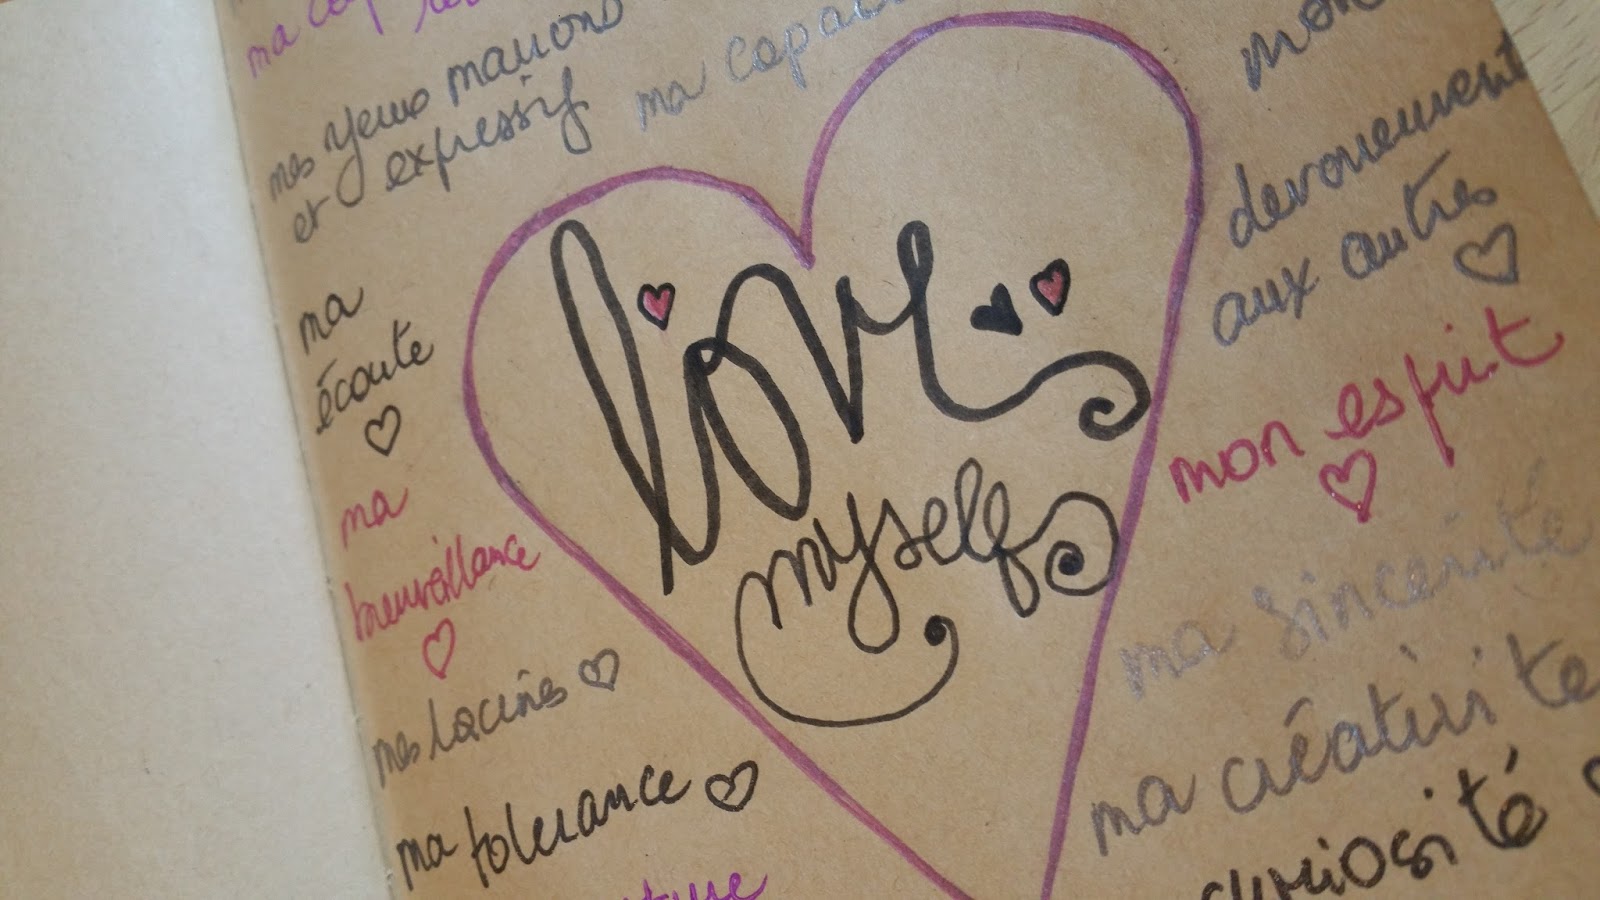 ma
mes yeux marrons
et expressif
ma
mon
devouement
aux autres
ma
écoute
love
myself
mon esprit
ma
bienveillance
ma sincerité
mes racines
ma créativité
ma tolerance
curiosité